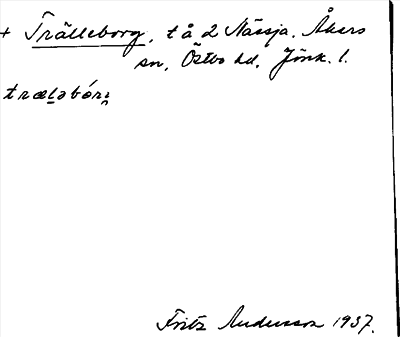 + Trälleborg, t å 2 Nässja. Åkers
sn, Östbo hd, Jönk. l.
Fritz Andersson 1937.